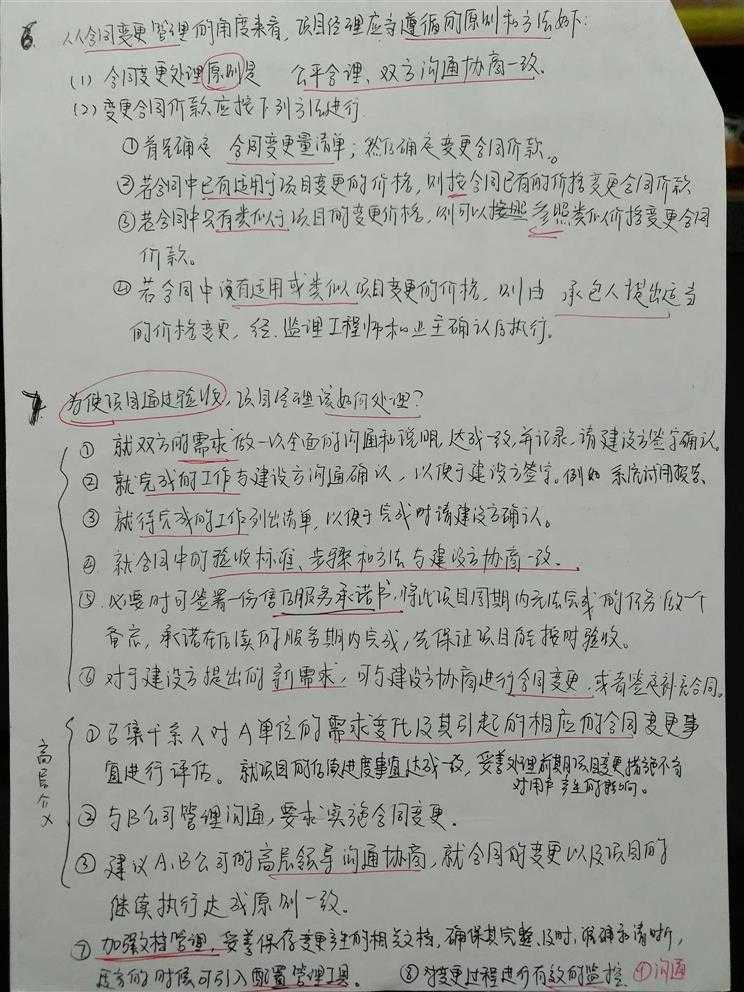 6. 从合同变更管理的角度来看，项目经理应当遵循的原则和方法如下：
(1) 合同变更处理原则是 公平合理、双方沟通协商一致.
(2) 变更合同价款应按下列方法进行
①首先确定 合同变更量清单；然后确定变更合同价款。
②若合同中已有适用于项目变更的价格，则按合同已有的价格变更合同价款
③若合同中只有类似于项目的变更价格，则可以按照 参照类似价格变更合同
价款。
④若合同中没有适用或类似项目变更的价格，则由 承包人提出适当
的价格变更，经、监理工程师和业主确认后执行。
7. 为使项目通过验收，项目经理该如何处理？
① 就双方的需求做一次全面的沟通和说明，达成一致，并记录，请建设方签字确认。
② 就完成的工作与建设方沟通确认，以便于建设方签字。例如 系统试用报告、
③ 就待完成的工作列出清单，以便于完成时请建设方确认。
④ 就合同中的验收标准、步骤和方法与建设方协商一致．
⑤ 必要时可签署一份售后服务承诺书，将此项目周期内无法完成的任务做一个
备忘，承诺在后续的服务期内完成，先保证项目能按时验收。
⑥ 对于建设方提出的新需求，可与建设方协商进行合同变更．或者签定补充合同。
高层介入
① 召集干系人对A单位的需求变化及其引起的相应的合同变更事
宜进行评估。就项目的后续进度事宜达成一致，妥善处理前期项目变更措施不当
对用户产生的影响。
② 与B公司管理沟通，要求实施合同变更．
③ 建议A、B公司的高层领导沟通协商，就合同的变更以及项目的
继续执行达成原则一致。
⑦ 加强文档管理，妥善保存变更产生的相关文档，确保其完整、及时、准确和清晰，
适当的时候可引入配置管理工具。 ⑧ 对变更过程进行有效的监控. ⑨沟通